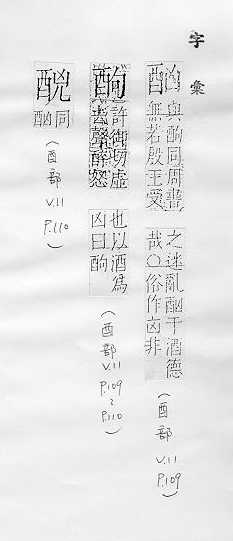 字彙
同周書無若殷王受
之迷亂酗于酒德哉〇俗作
非
(酉部 V.11 P.109)
許御切虛去聲醉怒
也以酒為凶曰
(酉部 V.11 P.109~P.110)
同
(酉部 V.11 P.110)